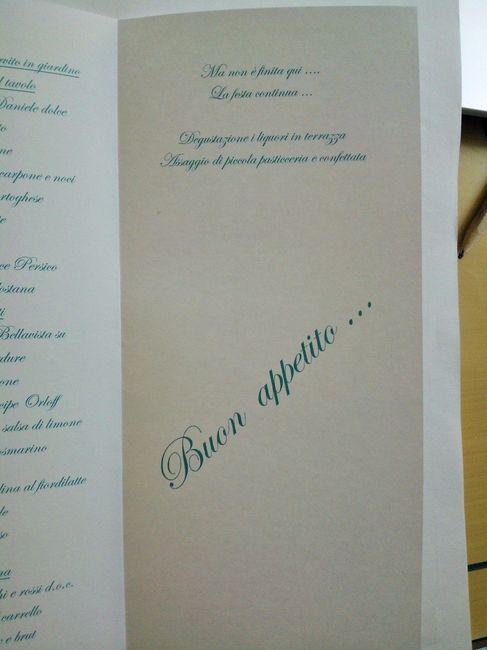 rvito in giardino
l tavolo
Daniele dolce
to
ne
carpone e noci
rtoghese
te
ce Persico
ostana
ti
Bellavista su
dure
one
cipe Orloff
salsa di limone
osmarino
lina al fiordilatte
le
so
na
hi e rossi d.o.c.
carrello
e brut
Ma non è finita qui ....
La festa continua ...
Degustazione i liquori in terrazza
Assaggio di piccola pasticceria e confettata
Buon appetito ...